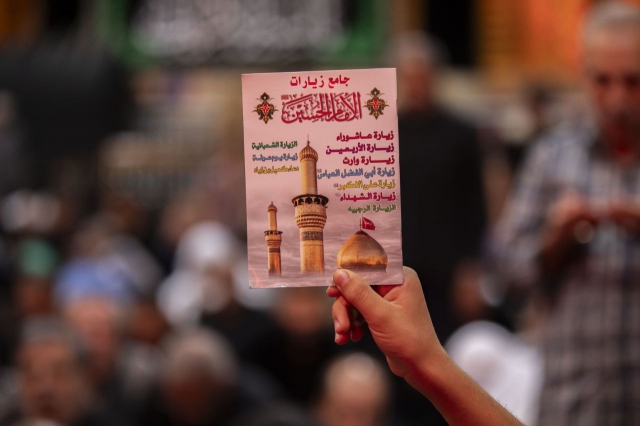 جامع زيارات
الإمام الحسين
زيارة عاشوراء
زيارة الأربعين
زيارة وارث
زيارة أبي الفضل العباس
زيارة علي الأكبر
زيارة الشهداء
الزيارة الرجبية
الزيارة الشعبانية
زيارة يوم عرفة